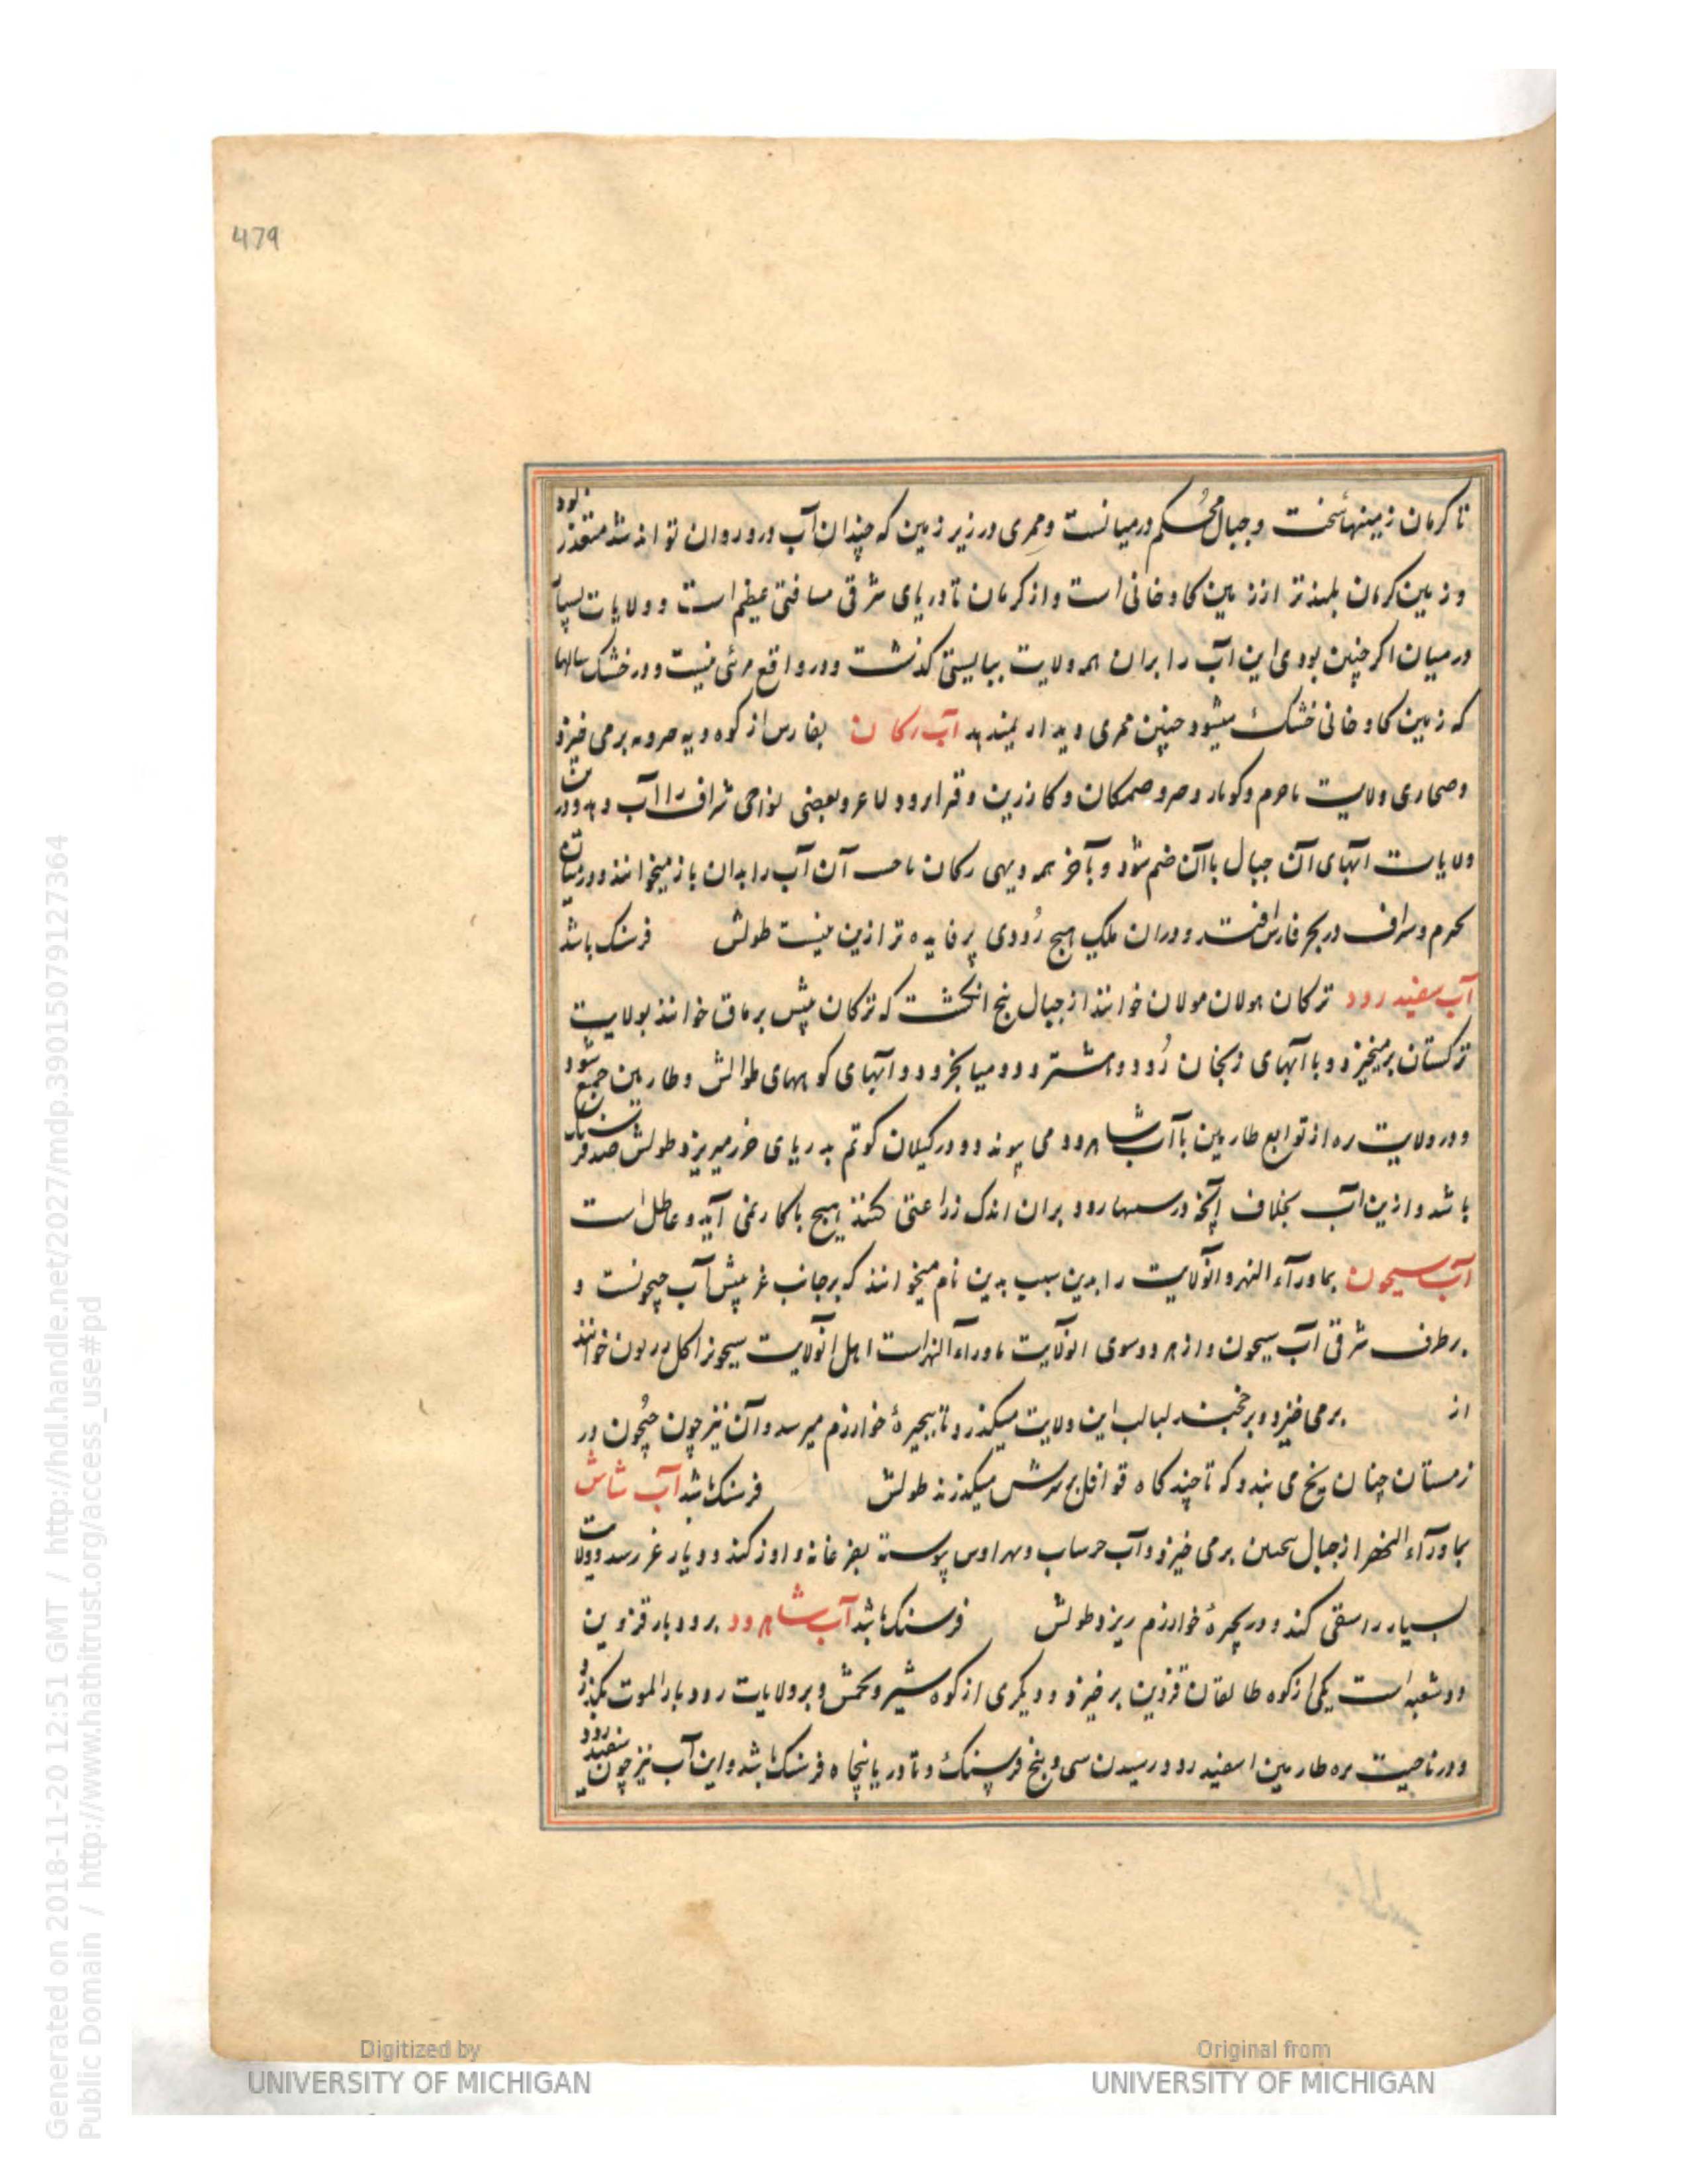 479
تا کرمان زمینهاء سخت و جبال محکم درمیانست و ممری در زیر زمین که چندان آب درو روان تواند شد متعذر بود
و زمین کرمان بلندتر از زمین کاوخانی است و از کرمان تا دریای شرقی مسافتی عظیم است و ولایات بسیار
در میان اکر چنین بودی این آب را بران همه ولایت ببایستی کذشت و در واقع مرئی نیست و در خشک سالها
که زمین کاوخانی خشک میشود چنین ممری دیدار نمیدهد آب رکان بفارس از کوه دیه برمی خیزد
و صحاری ولایت و کوبار و صمکان و کارزین و و بعضی نواحی را آب دهد و در
ولایات آبهای آن جبال با آن ضم شود و بآخر همه دیهی رکان آن آب را بدان باز میخوانند و در میان
در بحر فارس افتد و دران ملک هیچ رودی پر فایده تر ازین نیست طولش فرسنک باشد
آب سفید رود ترکان هولان مولان خوانند از جبال پنج انکشت که ترکان بیش برماق خوانند بولایت
ترکستان برمیخیزد و با آبهای زنجان رود و هشترود و میانج رود و آبهای کوههای طوالش و طارمین جمع شود
و در ولایت بره از توابع طارمین با آب شاهرود می پیوندد و در کیلان کوتم بدریای خزر میریزد طولش صد فرسنک
باشد و ازین آب بخلاف آنچه در رود بران اندک زراعتی کنند هیچ با کار نمی آید و عاطل است
آب سیحون بماوراء النهر و آنولایت را بدین سبب بدین نام میخوانند که برجانب غربیش آب جیحونست و
بر طرف شرقی آب سیحون و از هر دو سوی آنولایت ماوراء النهراست اهل آنولایت سیحونرا کل خوانند
از برمی خیزد و بر خجند لبالب این ولایت میکذرد تا ببحیرۀ خوارزم میرسد و آن نیز چون جیحون در
زمستان چنان یخ می بندد که تا چند کاه قوافل بر سرش میکذرند طولش فرسنک باشد آب شاش
بماوراء النهر از جبال برمی خیزد و آب پیوسته بفرغانه و اوزکند و دیار غز رسد و ولایت
بسیار را سقی کند و در بحیرۀ خوارزم ریزد طولش فرسنک باشد آب شاهرود برودبار قزوین
دو شعبه است یکی از کوه طالقان قزوین برخیزد و دیکری از کوه شیر و و بر ولایات رودبار الموت بکذرد
و در ناحیت بره طارمین با سفید رود رسیدن سی و پنج فرسنک و تا دریا پنجاه فرسنک باشد و این آب نیز چون سفید رود
Generated on 2018-11-20 12:51 GMT / http://hdl.handle.net/2027/mdp.39015079127364
Public Domain / http://www.hathitrust.org/access_use#pd
Digitized by
UNIVERSITY OF MICHIGAN
Original from
UNIVERSITY OF MICHIGAN